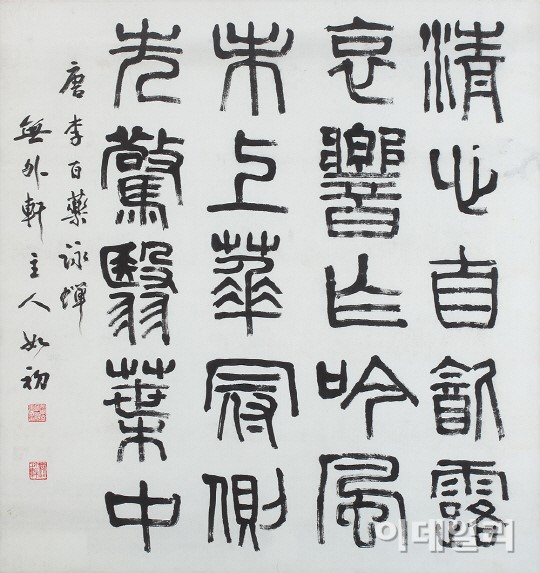 清心自飮露
哀響乍吟風
未上華冠側
先驚翳葉中
唐李百藥詠蟬
無外軒主人如初
이데일리